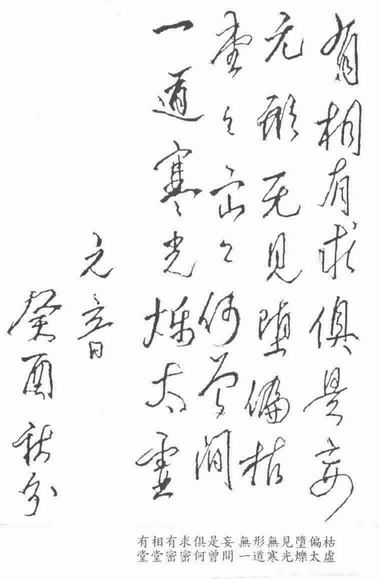 有相有求俱是妄
无形无见堕偏枯
堂々密々何曾间
一道寒光烁太虚
元音
癸酉秋分
有相有求俱是妄 無形無見墮偏枯
堂堂密密何曾間 一道寒光爍太虛